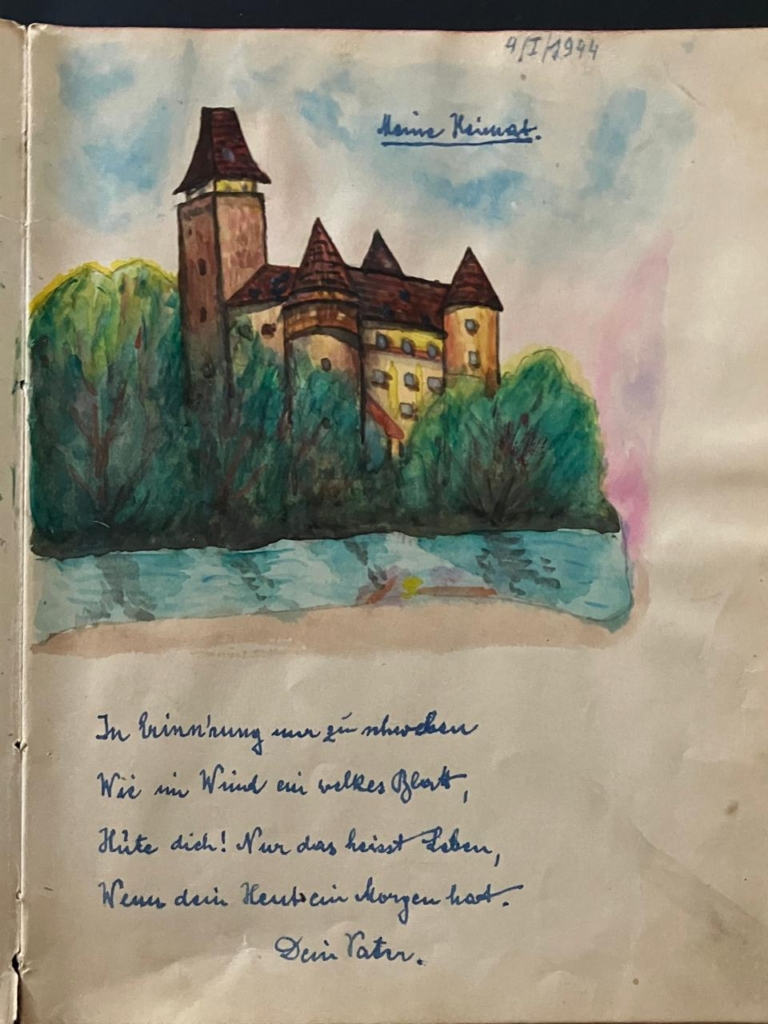 9/I/1944
Meine Heimat.
In Erinn'rung nur zu schweben
Wie im Wind ein welkes Blatt,
Hüte dich! Nur das heisst Leben,
Wenn dein Heut ein Morgen hat.
Dein Vater.